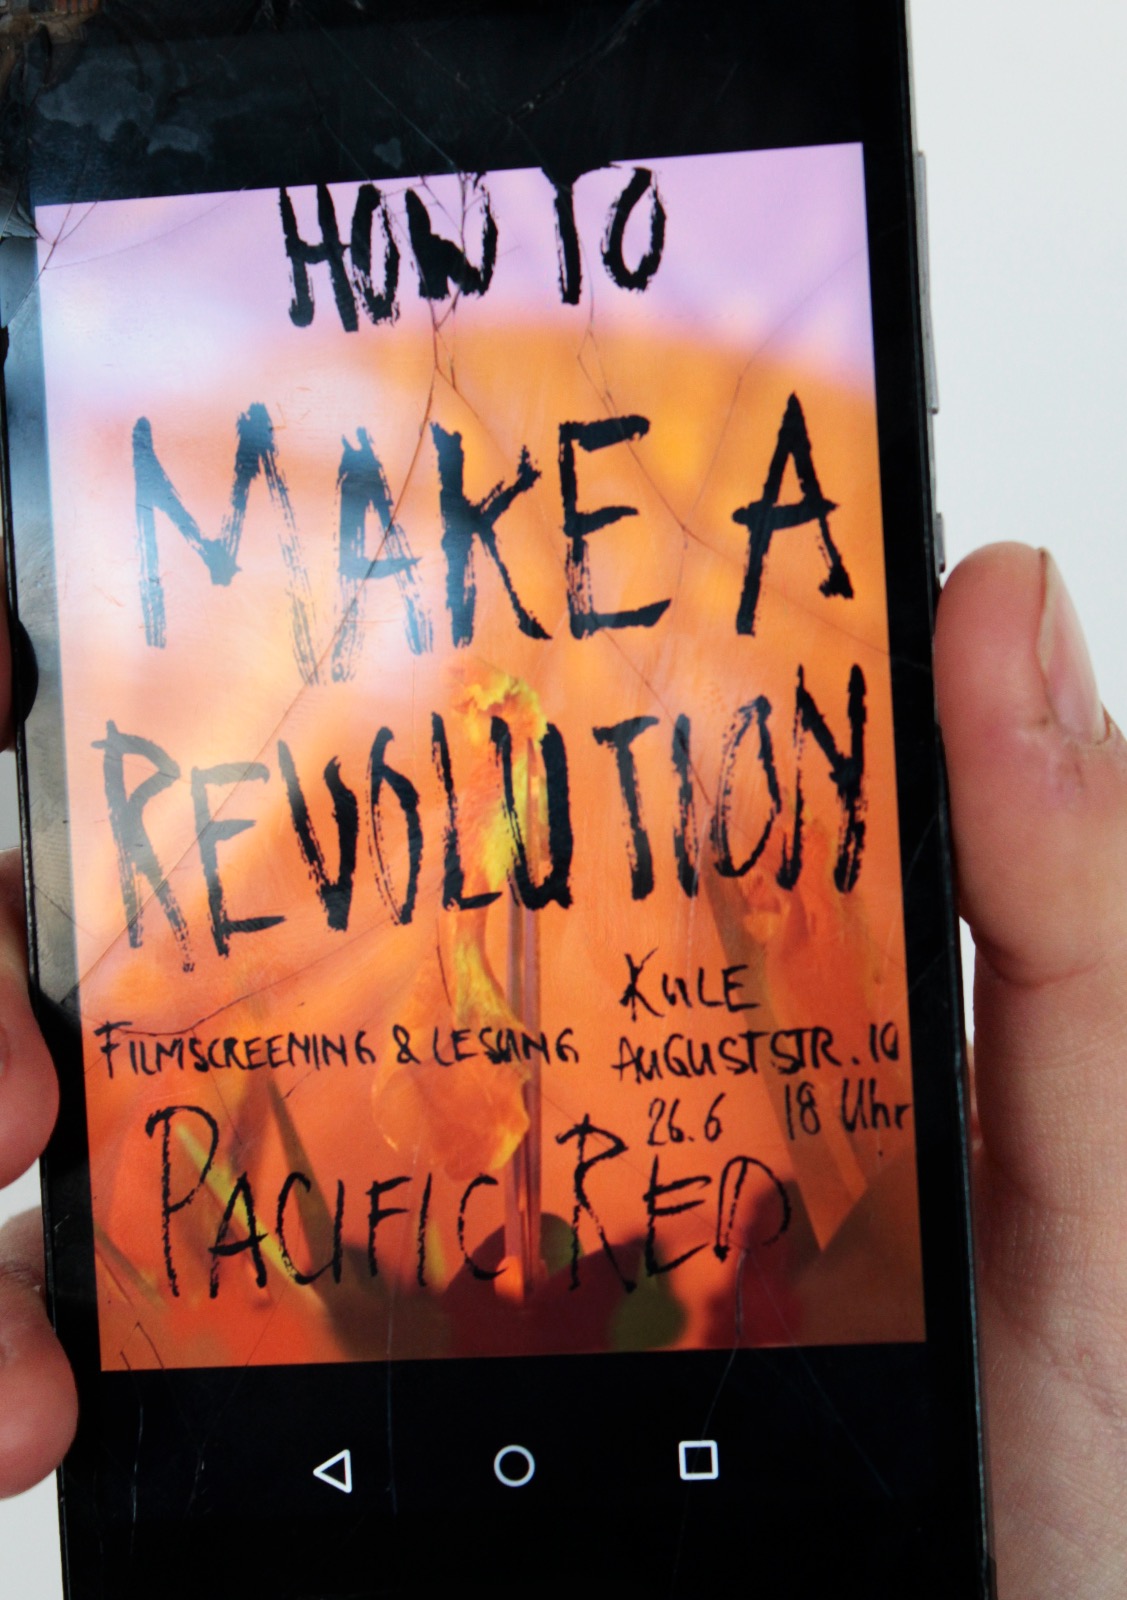 HOW TO
MAKE A
REVOLUTION
KuLE
FILMSCREENING & LESUNG
AUGUSTSTR. 10
26.6 18 Uhr
PACIFIC RED